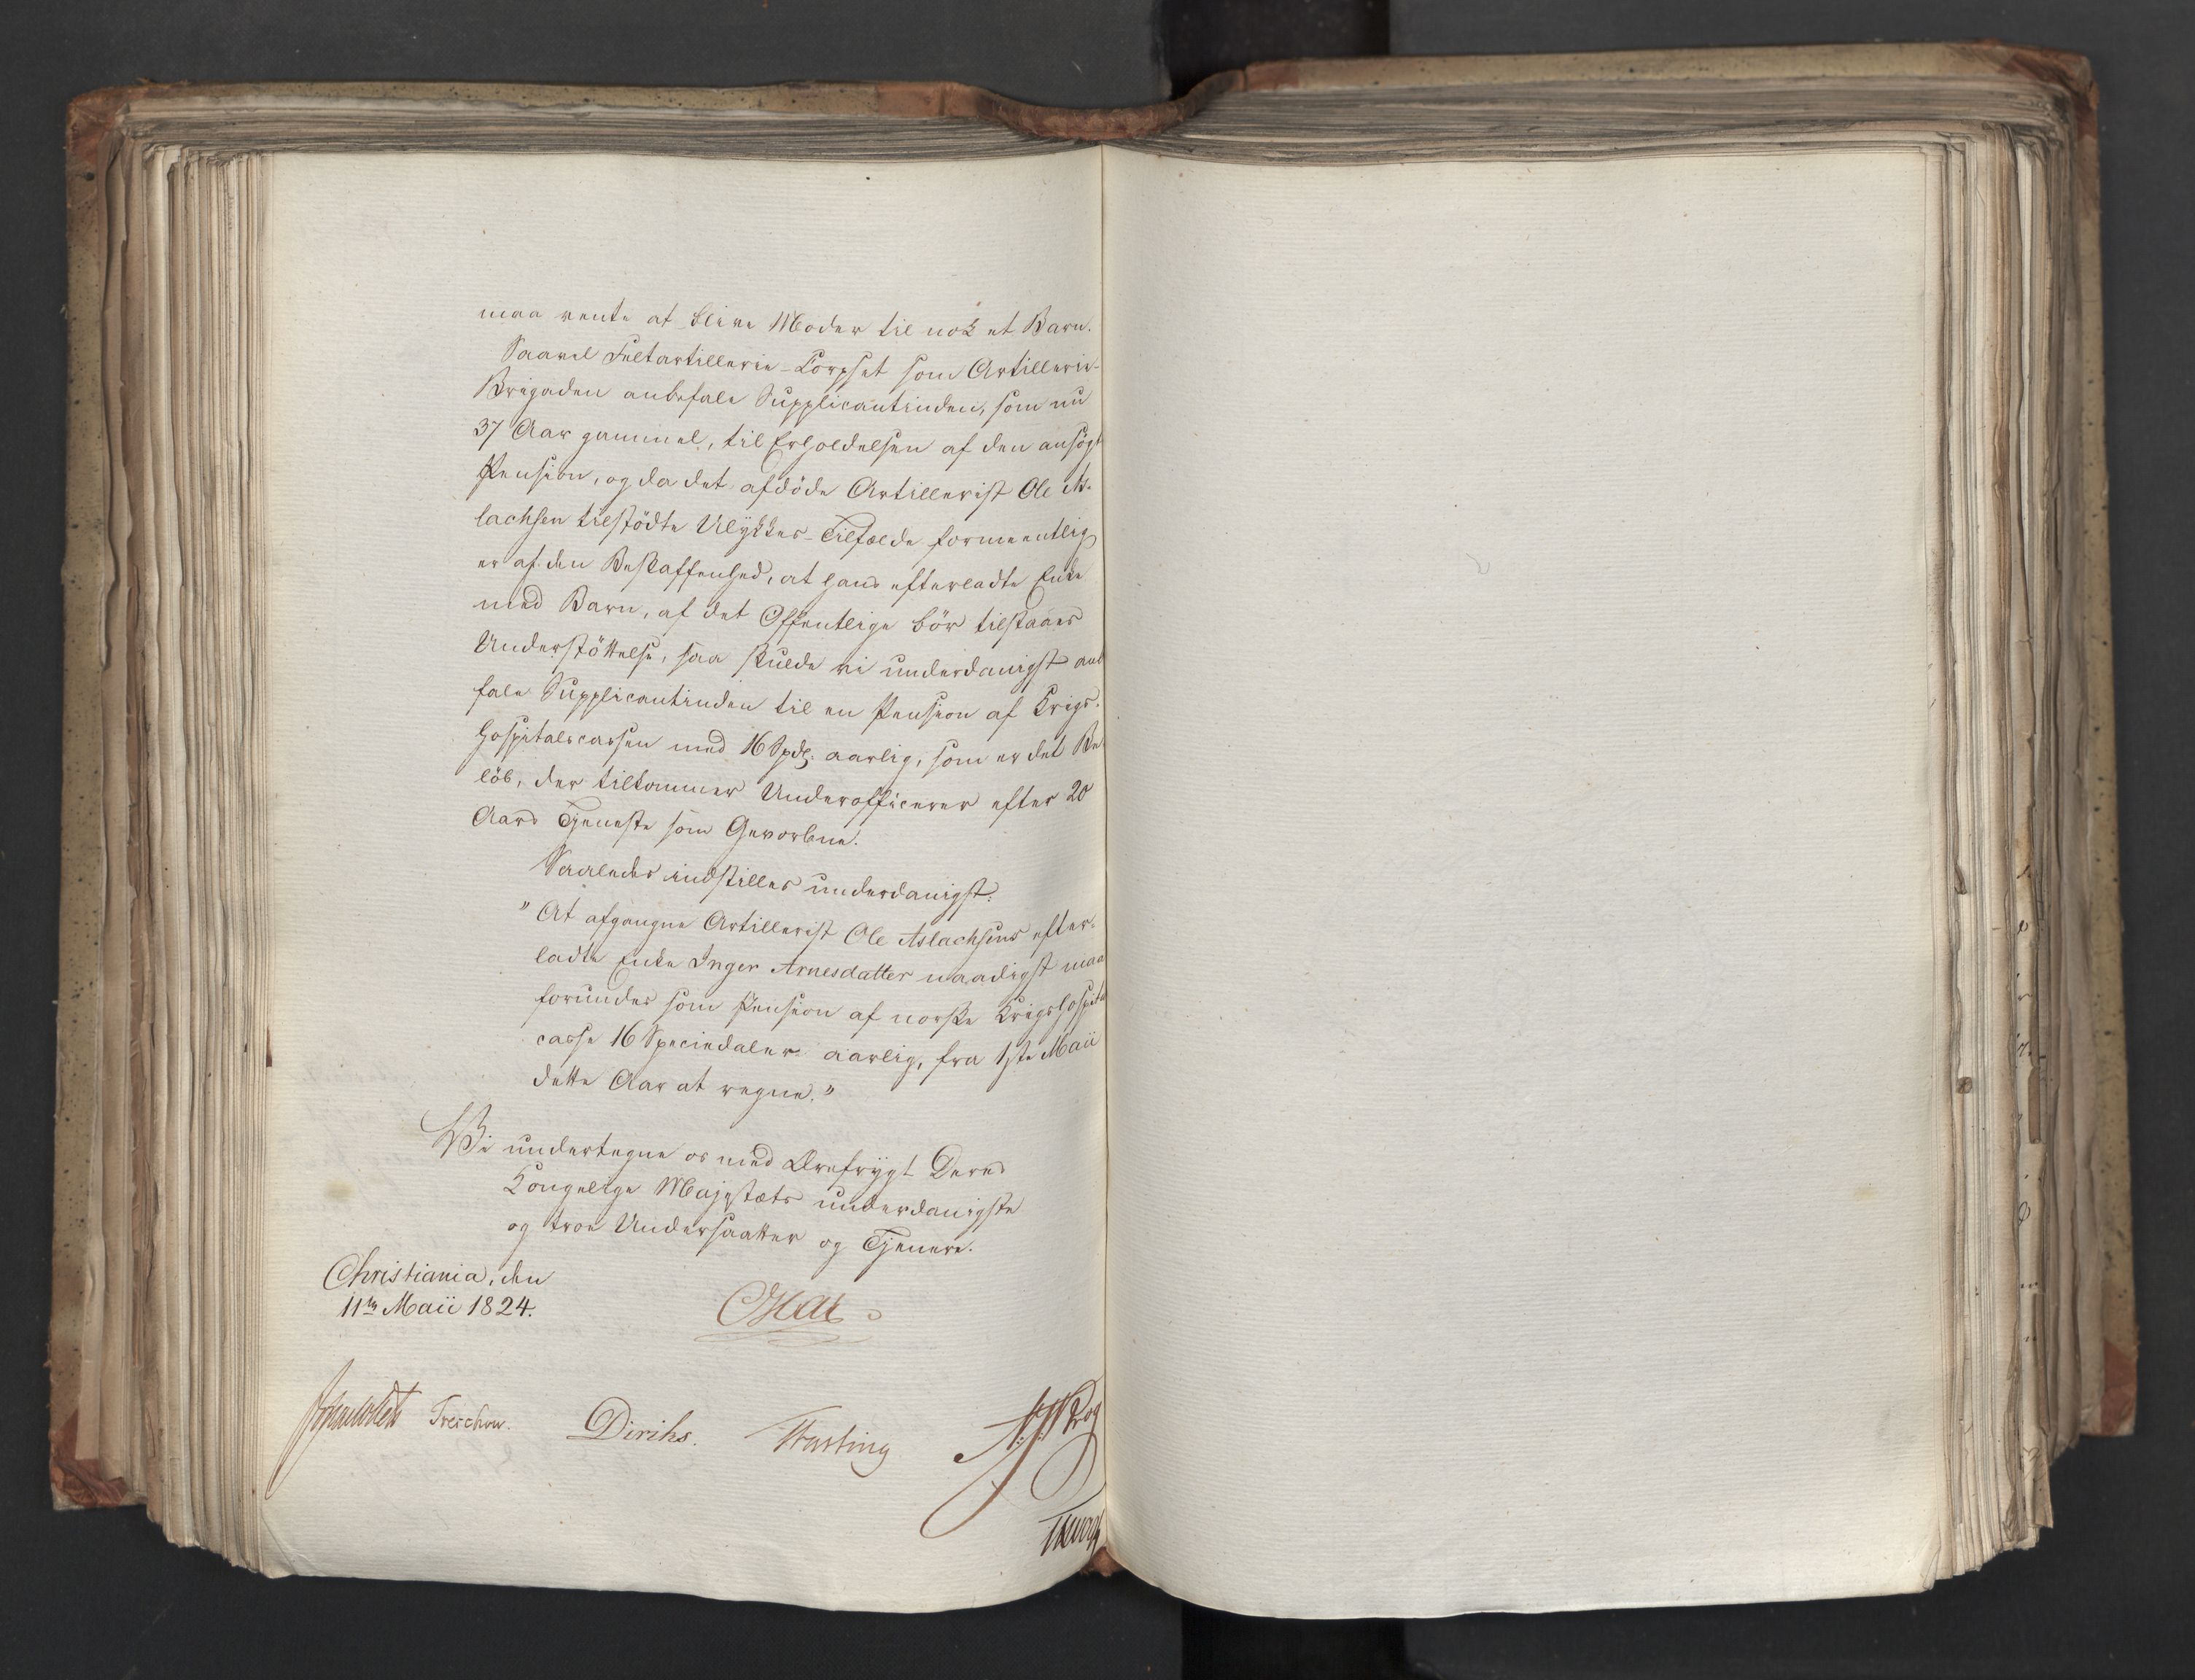 maa vente at blive Moder til nok et Barn.
Saavel Feltartillerie-Corpset som Artillerie-
Brigaden anbefale Supplicantinden, som nu
37 Aar gammel, til Erholdelsen af den ansøgt
Pension, og da det afdøde Artillerist Ole As-
lachsen tilstødte Ulykkes-Tilfælde formeentlig
er af den Beskaffenhed, at hans efterladte Enke
med Barn, af det Offentlige bør tilstaaes
Understøttelse, saa skulde vi underdanigst anb
fale Supplicantinden til en Pension af Krigs-
hospitalscassen med 16 Spdlr. aarlig, som er det Be
løb, der tilkommer Underofficerer efter 20
Aars Tjeneste som Gevorbne.
Saaledes indstilles underdanigst:
"At afgangne Artillerist Ole Aslachsens efter-
ladte Enke Inger Arnesdatter naadigst maa
forundes som Pension af norske Krigshospital
casse 16 Speciedaler aarlig, fra 1ste Maii
dette Aar at regne."
Vi undertegne os med Ærefrygt Deres
Kongelige Majestæts underdanigste
og troe Undersaatter og Tjenere.
Christiania, den
11te Maii 1824.
Treschow.
Diriks.
Fasting